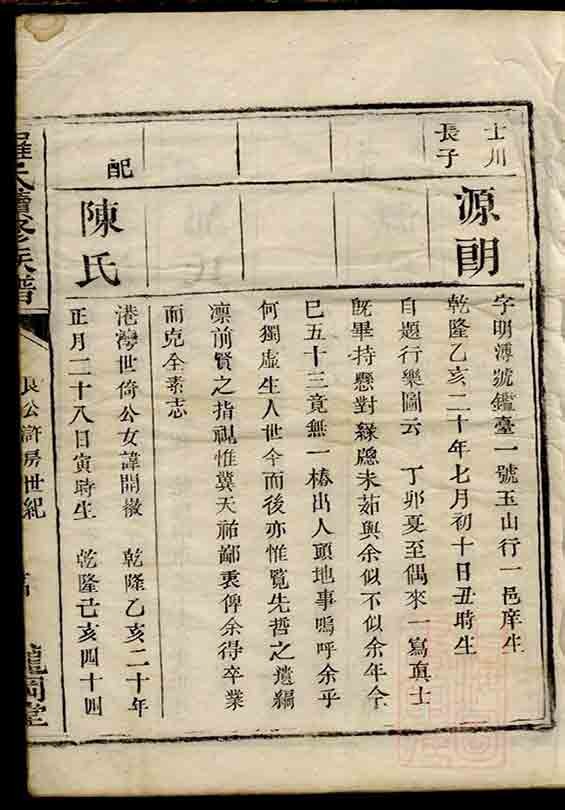 士川
長子
源朗
字明溥號鑑臺一號玉山行一邑庠生
乾隆乙亥二十年七月初十日丑時生
自題行樂圖云 丁卯夏至偶來一寫真士
既畢持懸對綠牕未茹與余似不似余年今
巳五十三竟無一樁出人頭地事嗚呼余乎
何獨虛生人世今而後亦惟覽先哲之遺編
凛前賢之指視惟冀天祐鄙衷俾余得卒業
而克全素志
配
陳氏
港灣世倚公女諱開橄 乾隆乙亥二十年
正月二十八日寅時生 乾隆己亥四十四
羅氏續修族譜
長公許房世紀
龍岡堂